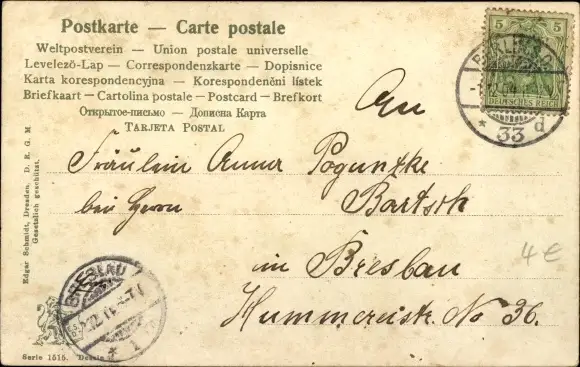 Postkarte — Carte postale
Weltpostverein — Union postale universelle
Levelező-Lap — Correspondenzkarte — Dopisnice
Karta korespondencyjna — Korespondenční lístek
Briefkaart — Cartolina postale — Postcard — Brefkort
Открытое-письмо — Дописна Карта
Tarjeta Postal
5 5
DEUTSCHES REICH
BERLIN
33 d
An
Fräulein Anna Poguntke
bei Herrn Bartsch
in Breslau
Hummereistr. No 36.
4 €
BRESLAU
Edgar Schmidt, Dresden. D. R. G. M
Gesetzlich geschützt.
Serie 1515.